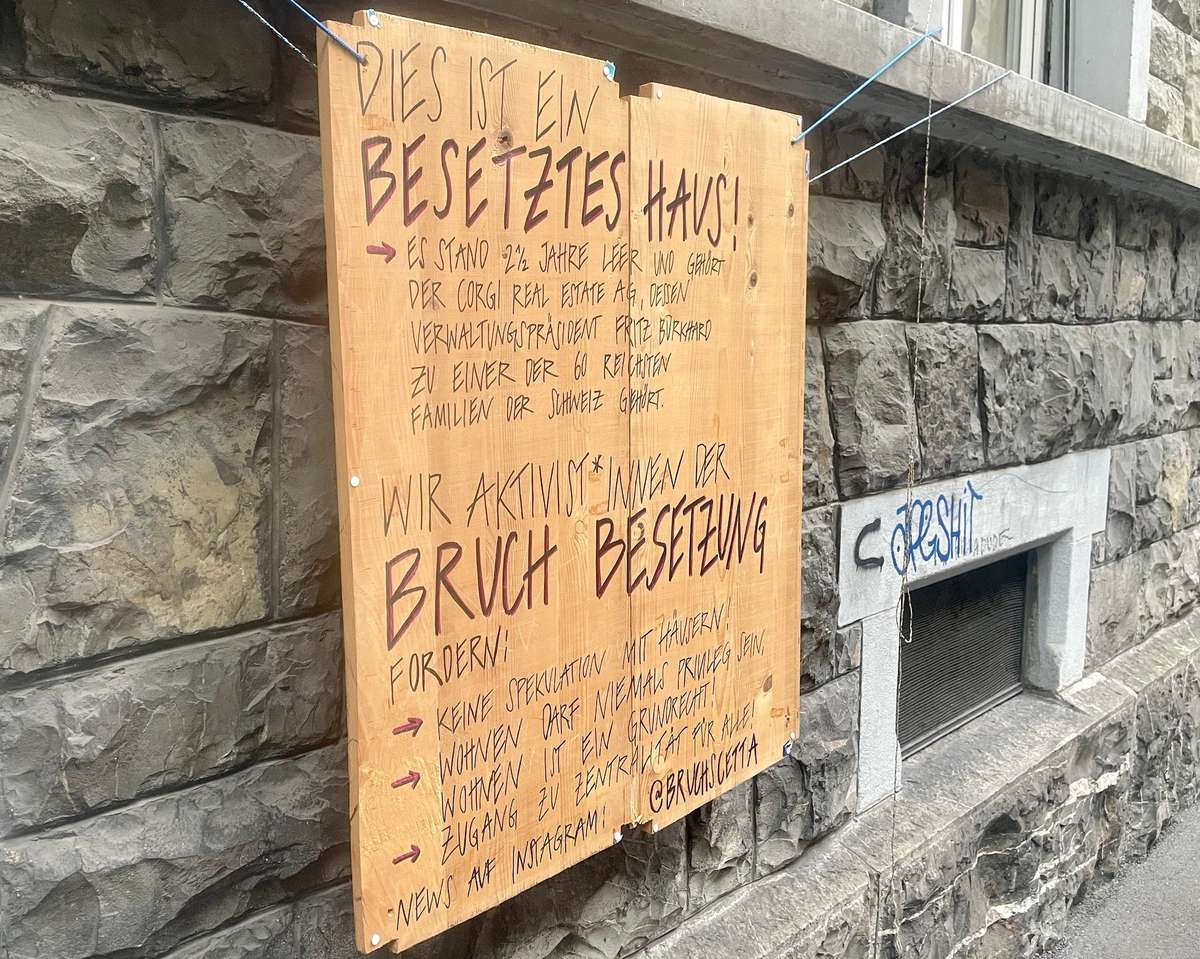 DIES IST EIN
BESETZTES HAUS!
→ ES STAND 2½ JAHRE LEER UND GEHÖRT
DER CORGI REAL ESTATE AG, DESSEN
VERWALTUNGSPRÄSIDENT FRITZ BURKHARD
ZU EINER DER 60 REICHSTEN
FAMILIEN DER SCHWEIZ GEHÖRT.
WIR AKTIVIST*INNEN DER
BRUCH BESETZUNG
FORDERN:
→ KEINE SPEKULATION MIT HÄUSERN!
→ WOHNEN DARF NIEMALS PRIVILEG SEIN,
WOHNEN IST EIN GRUNDRECHT!
→ ZUGANG ZU ZENTRALITÄT FÜR ALLE!
NEWS AUF INSTAGRAM!
@BRUCHSCETTA